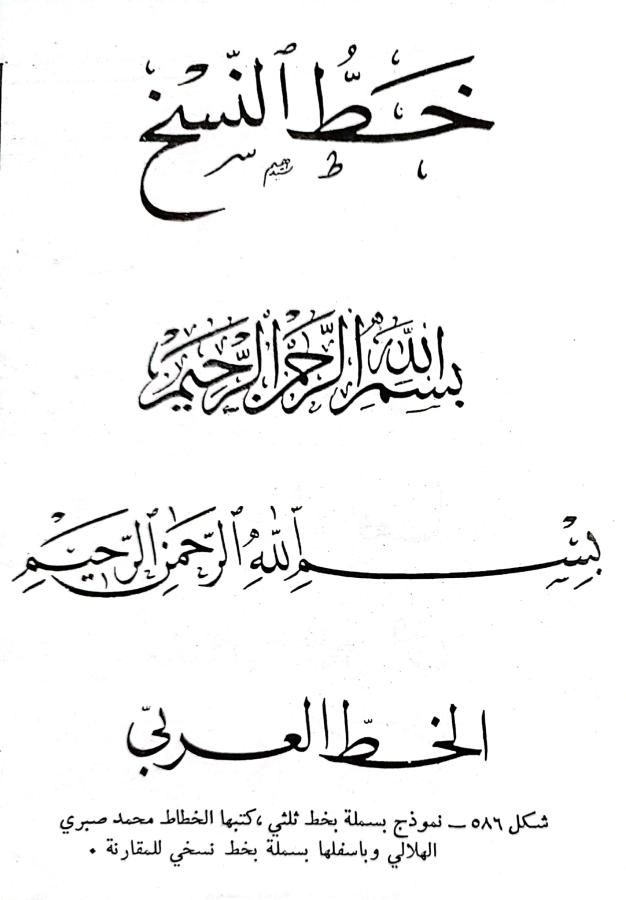 خَطُّ ٱلنَّسْخِ
بِسْمِ اللهِ الرَّحْمٰنِ الرَّحِيْمِ
بِسْمِ ٱللّٰهِ ٱلرَّحْمٰنِ ٱلرَّحِيْمِ
الخطّ العربيّ
شكل ٥٨٦ – نموذج بسملة بخط ثلثي ، كتبها الخطاط محمد صبري
الهلالي وباسفلها بسملة بخط نسخي للمقارنة .